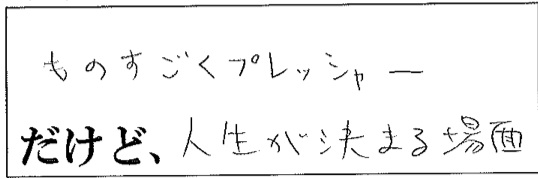 ものすごくプレッシャー
だけど、人生が決まる場面